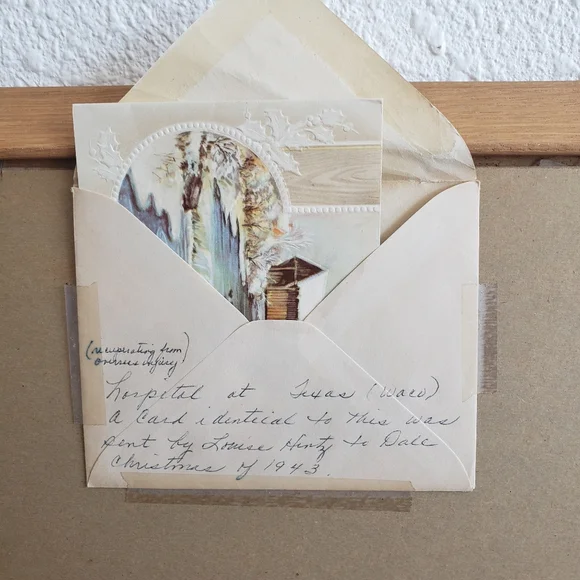 (recuperating from
overseas injury)
hospital at Texas (Waco)
a card identical to this was
sent by Louise Hintz to Dale
Christmas of 1943.